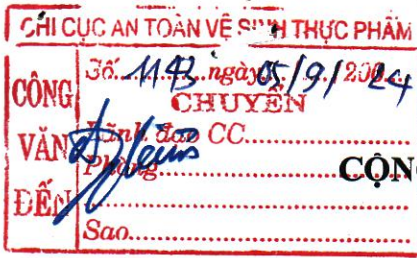 CHI CỤC AN TOÀN VỆ SINH THỰC PHẨM
CÔNG VĂN ĐẾN
Số 1143 ngày 05/9/2024
CHUYỂN
Lãnh đạo CC
Phòng
CỘN
Sao